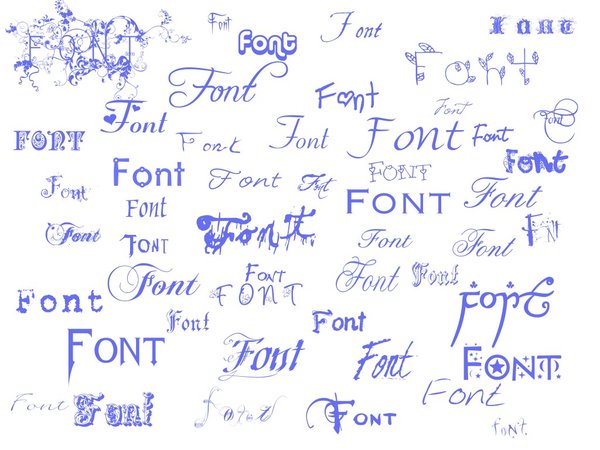 FONT
Font
Font
Font
Font
Font
Font
Font
Font
Font
Font
FONT
Font
Font
Font
Font
Font
Font
Font
Font
Font
FONT
FONT
Font
Font
Font
Font
Font
Font
Font
Font
Font
Font
FONT
Font
Font
Font
Font
Font
Font
FONT
Font
Font
FONT
Font
Font
Font
Font
Font
Font